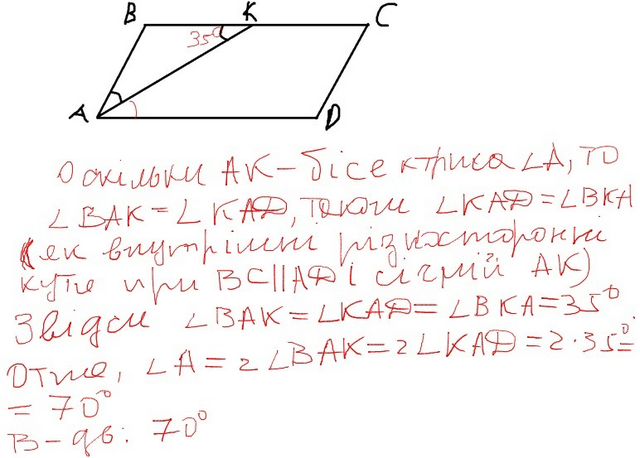 B K C
35°
A D
Оскільки AK – бісектриса ∠A, то
∠BAK = ∠KAD, також ∠KAD = ∠BKA
(як внутрішні різносторонні
кути при BC||AD і січній AK)
Звідси ∠BAK = ∠KAD = ∠BKA = 35°.
Отже, ∠A = 2∠BAK = 2∠KAD = 2·35° =
= 70°
В-дь: 70°